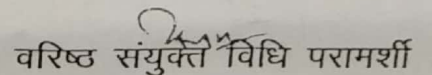 वरिष्ठ संयुक्त विधि परामर्शी